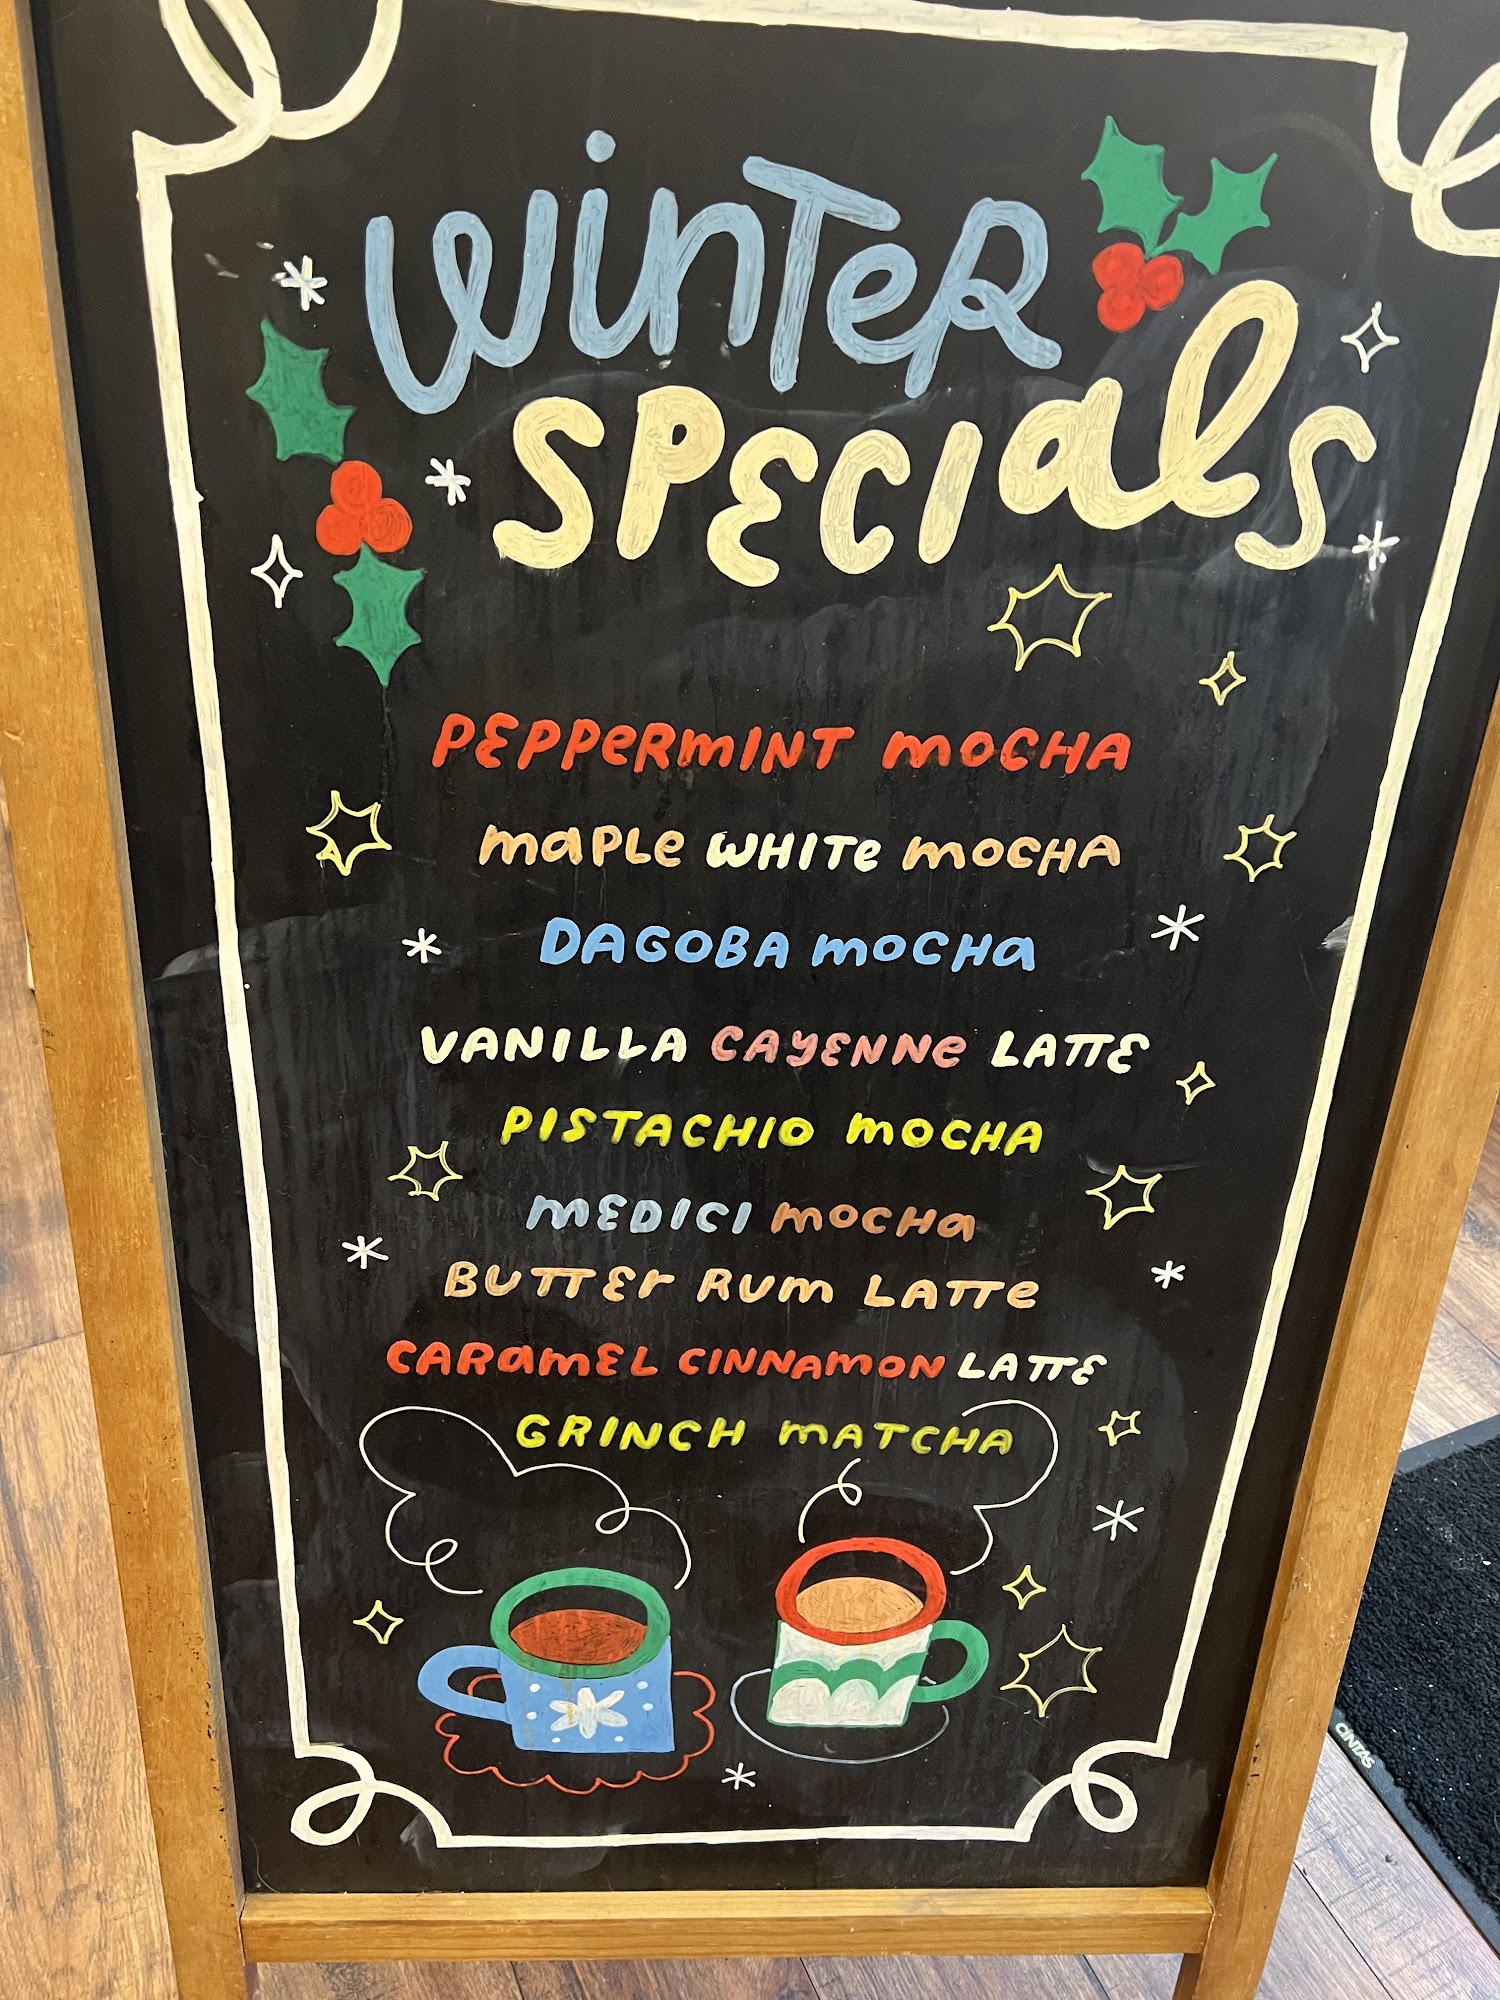 WinTeR
SPECIalS
PEPPPeRmINT mOCHA
maPLe WHITe mOCHA
DAGOBA mOCHa
VANILLA CAYENNe LATTE
PISTACHIO mOCHA
mEDICI mOCHa
BUTTEr RUm LATTe
CARamEL CINNAmON LATTE
GRINCH mATCHA
CINTAS